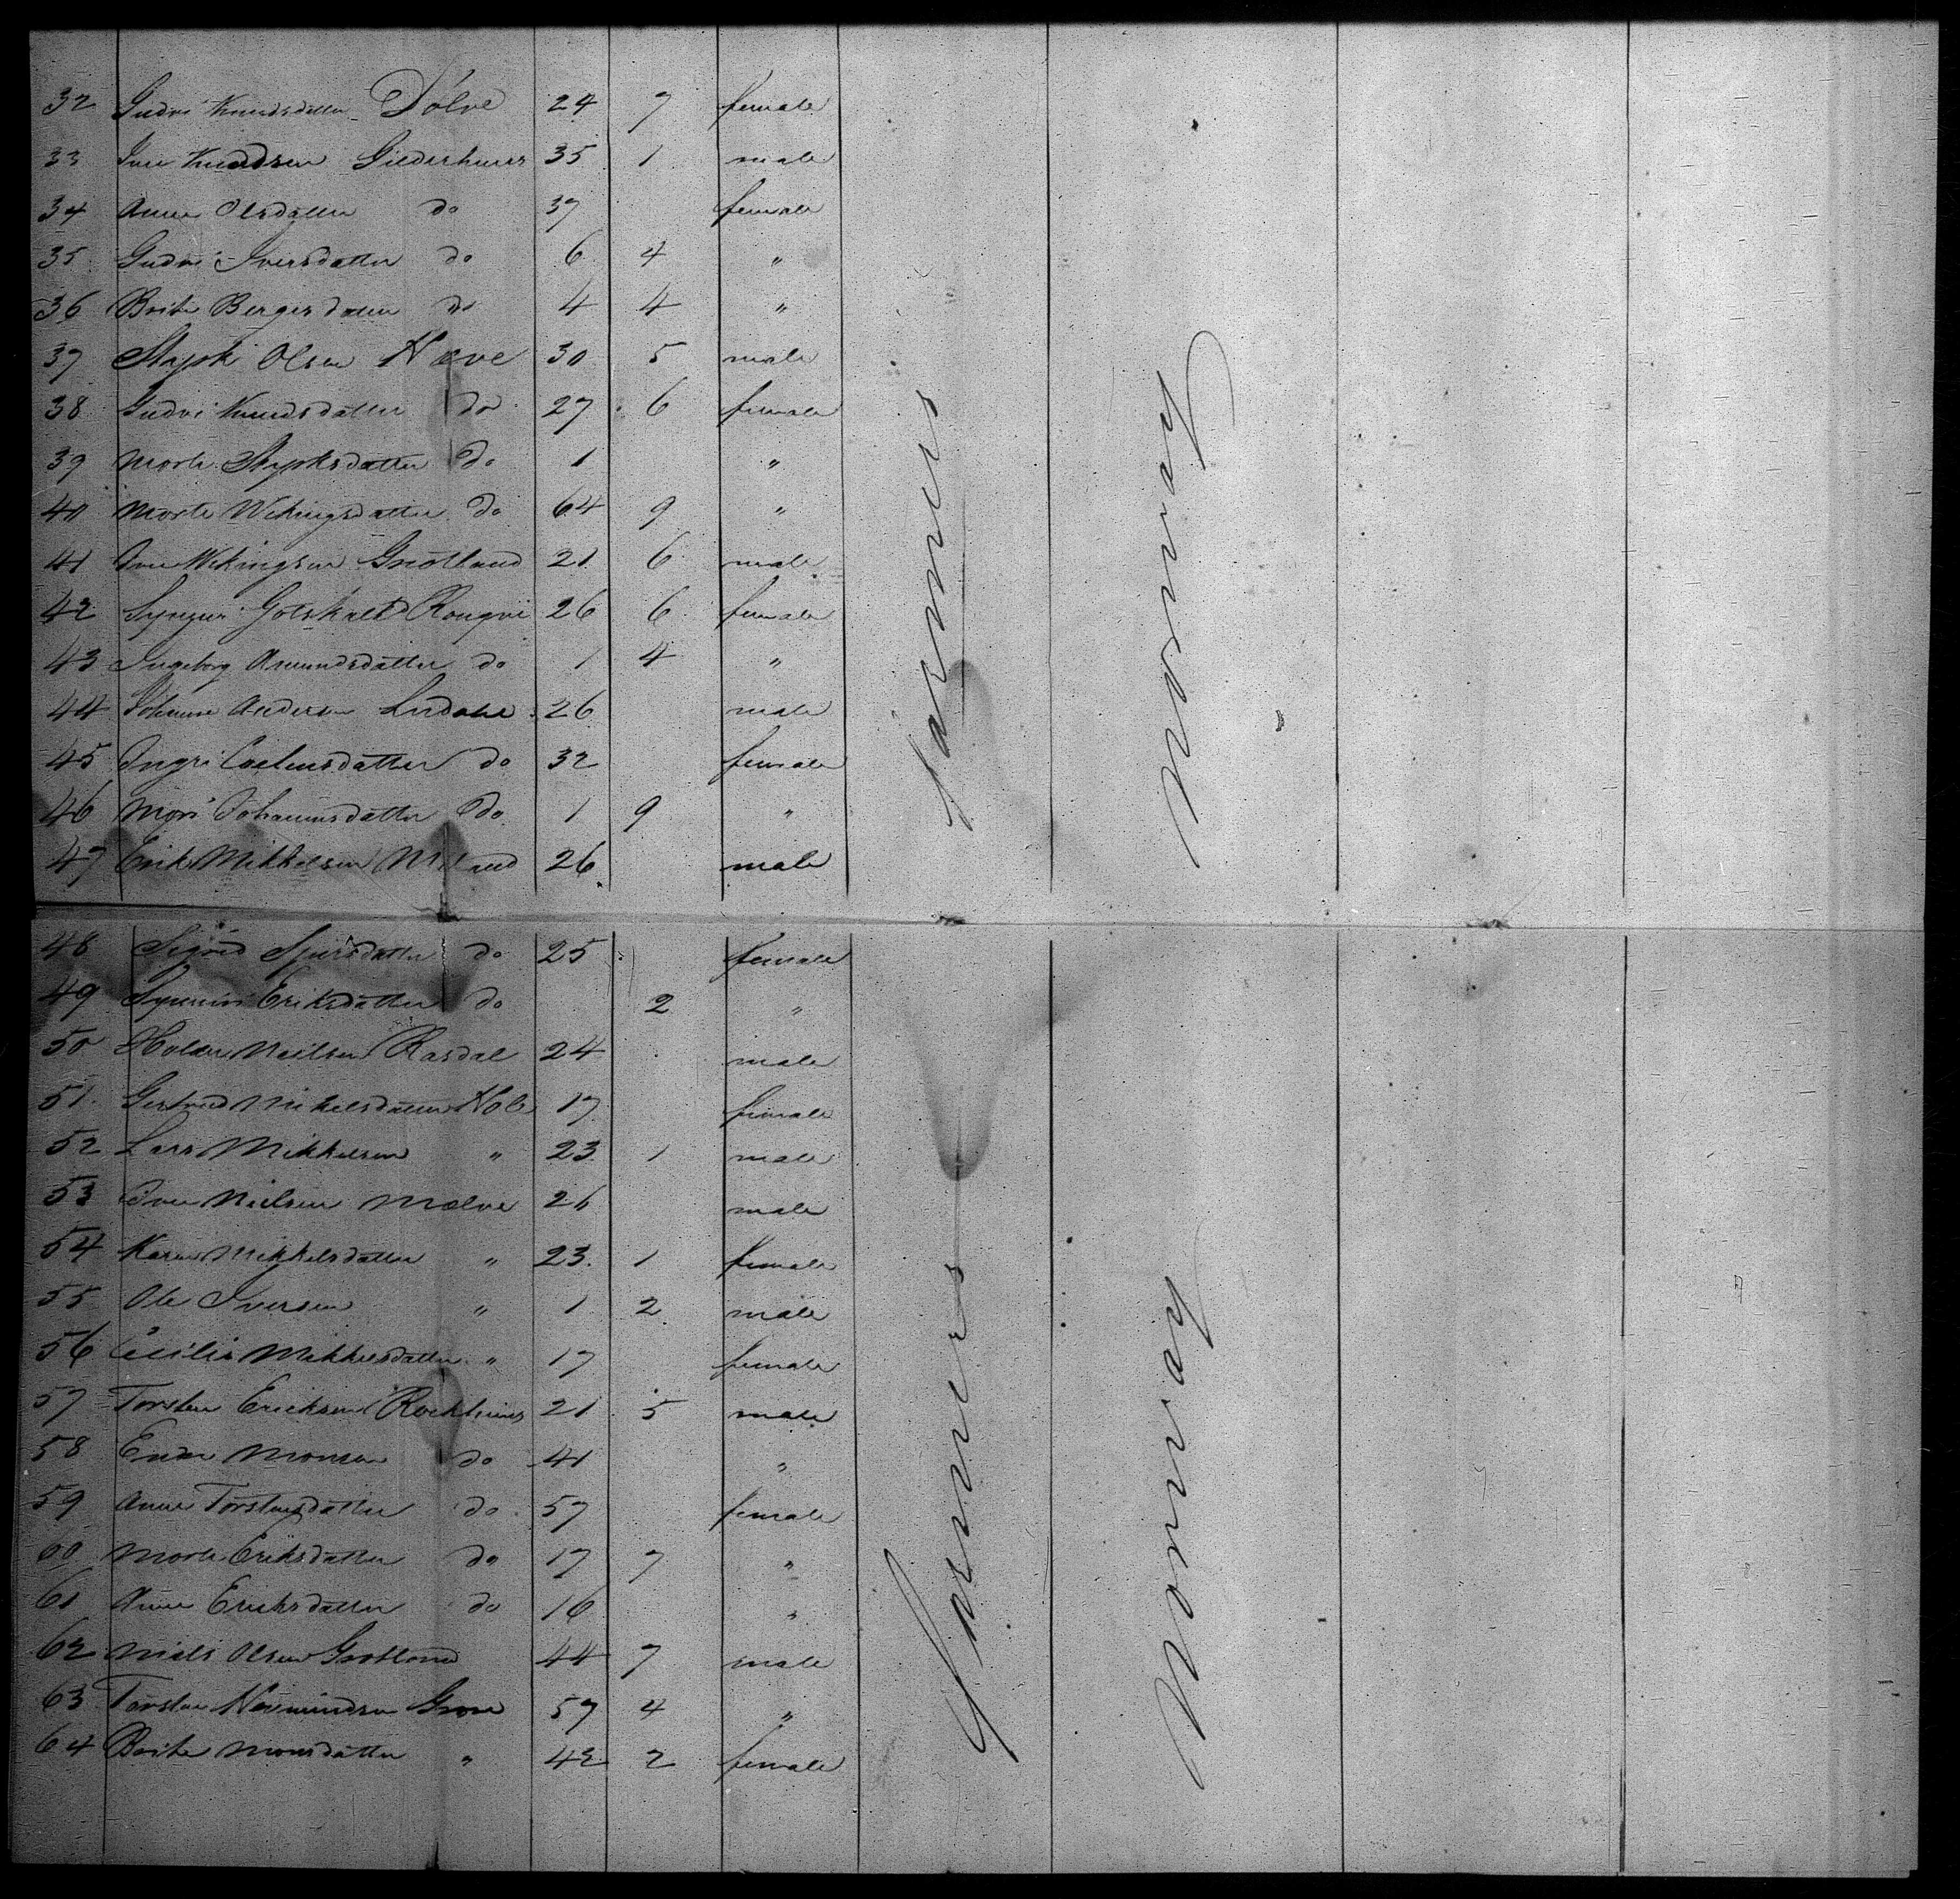 32 Gudvi Knudsdatter Dølve 24 7 female
33 Iver Knudsen Giederhuus 35 1 male
34 Anne Olsdatter do 37 female
35 Gudvi Iversdatter do 6 4 "
36 Brite Bergesdatter do 4 4 "
37 Olsen Næve 30 5 male
38 Gudvi Knudsdatter do 27 6 female
39 Marte do 1 "
40 Marte Wikingsdatter do 64 9 "
41 Iver Wikingsen 21 6 male
42 Rongve 26 6 female
43 Ingeborg Amundsdatter do 1 4 "
44 Andersen 26 male
45 Ingri do 32 female
46 Johannesdatter do 1 9 "
47 Erik Mikkelsen 26 male
48 Sigrid do 25 female
49 Eriksdatter do 2 "
50 Nielsen Rasdal 24 male
51 Gertrud Mikelsdatter 17 female
52 Lars Mikkelsen " 23 1 male
53 Iver Nielsen Mølve 26 male
54 Karen Mikkelsdatter " 23 1 female
55 Ole Iversen " 1 2 male
56 Cecilia Mikkelsdatter " 17 female
57 Torsten Ericksen 21 5 male
58 Monsen do 41 "
59 Anne Torstensdatter do 57 female
60 Marte Eriksdatter do 17 7 "
61 Anne Eriksdatter do 16 "
62 Niels Olsen 44 7 male
63 Torsten 57 4 "
64 Brite Monsdatter " 42 2 female
Farmers
Norway
Farmers
Norway